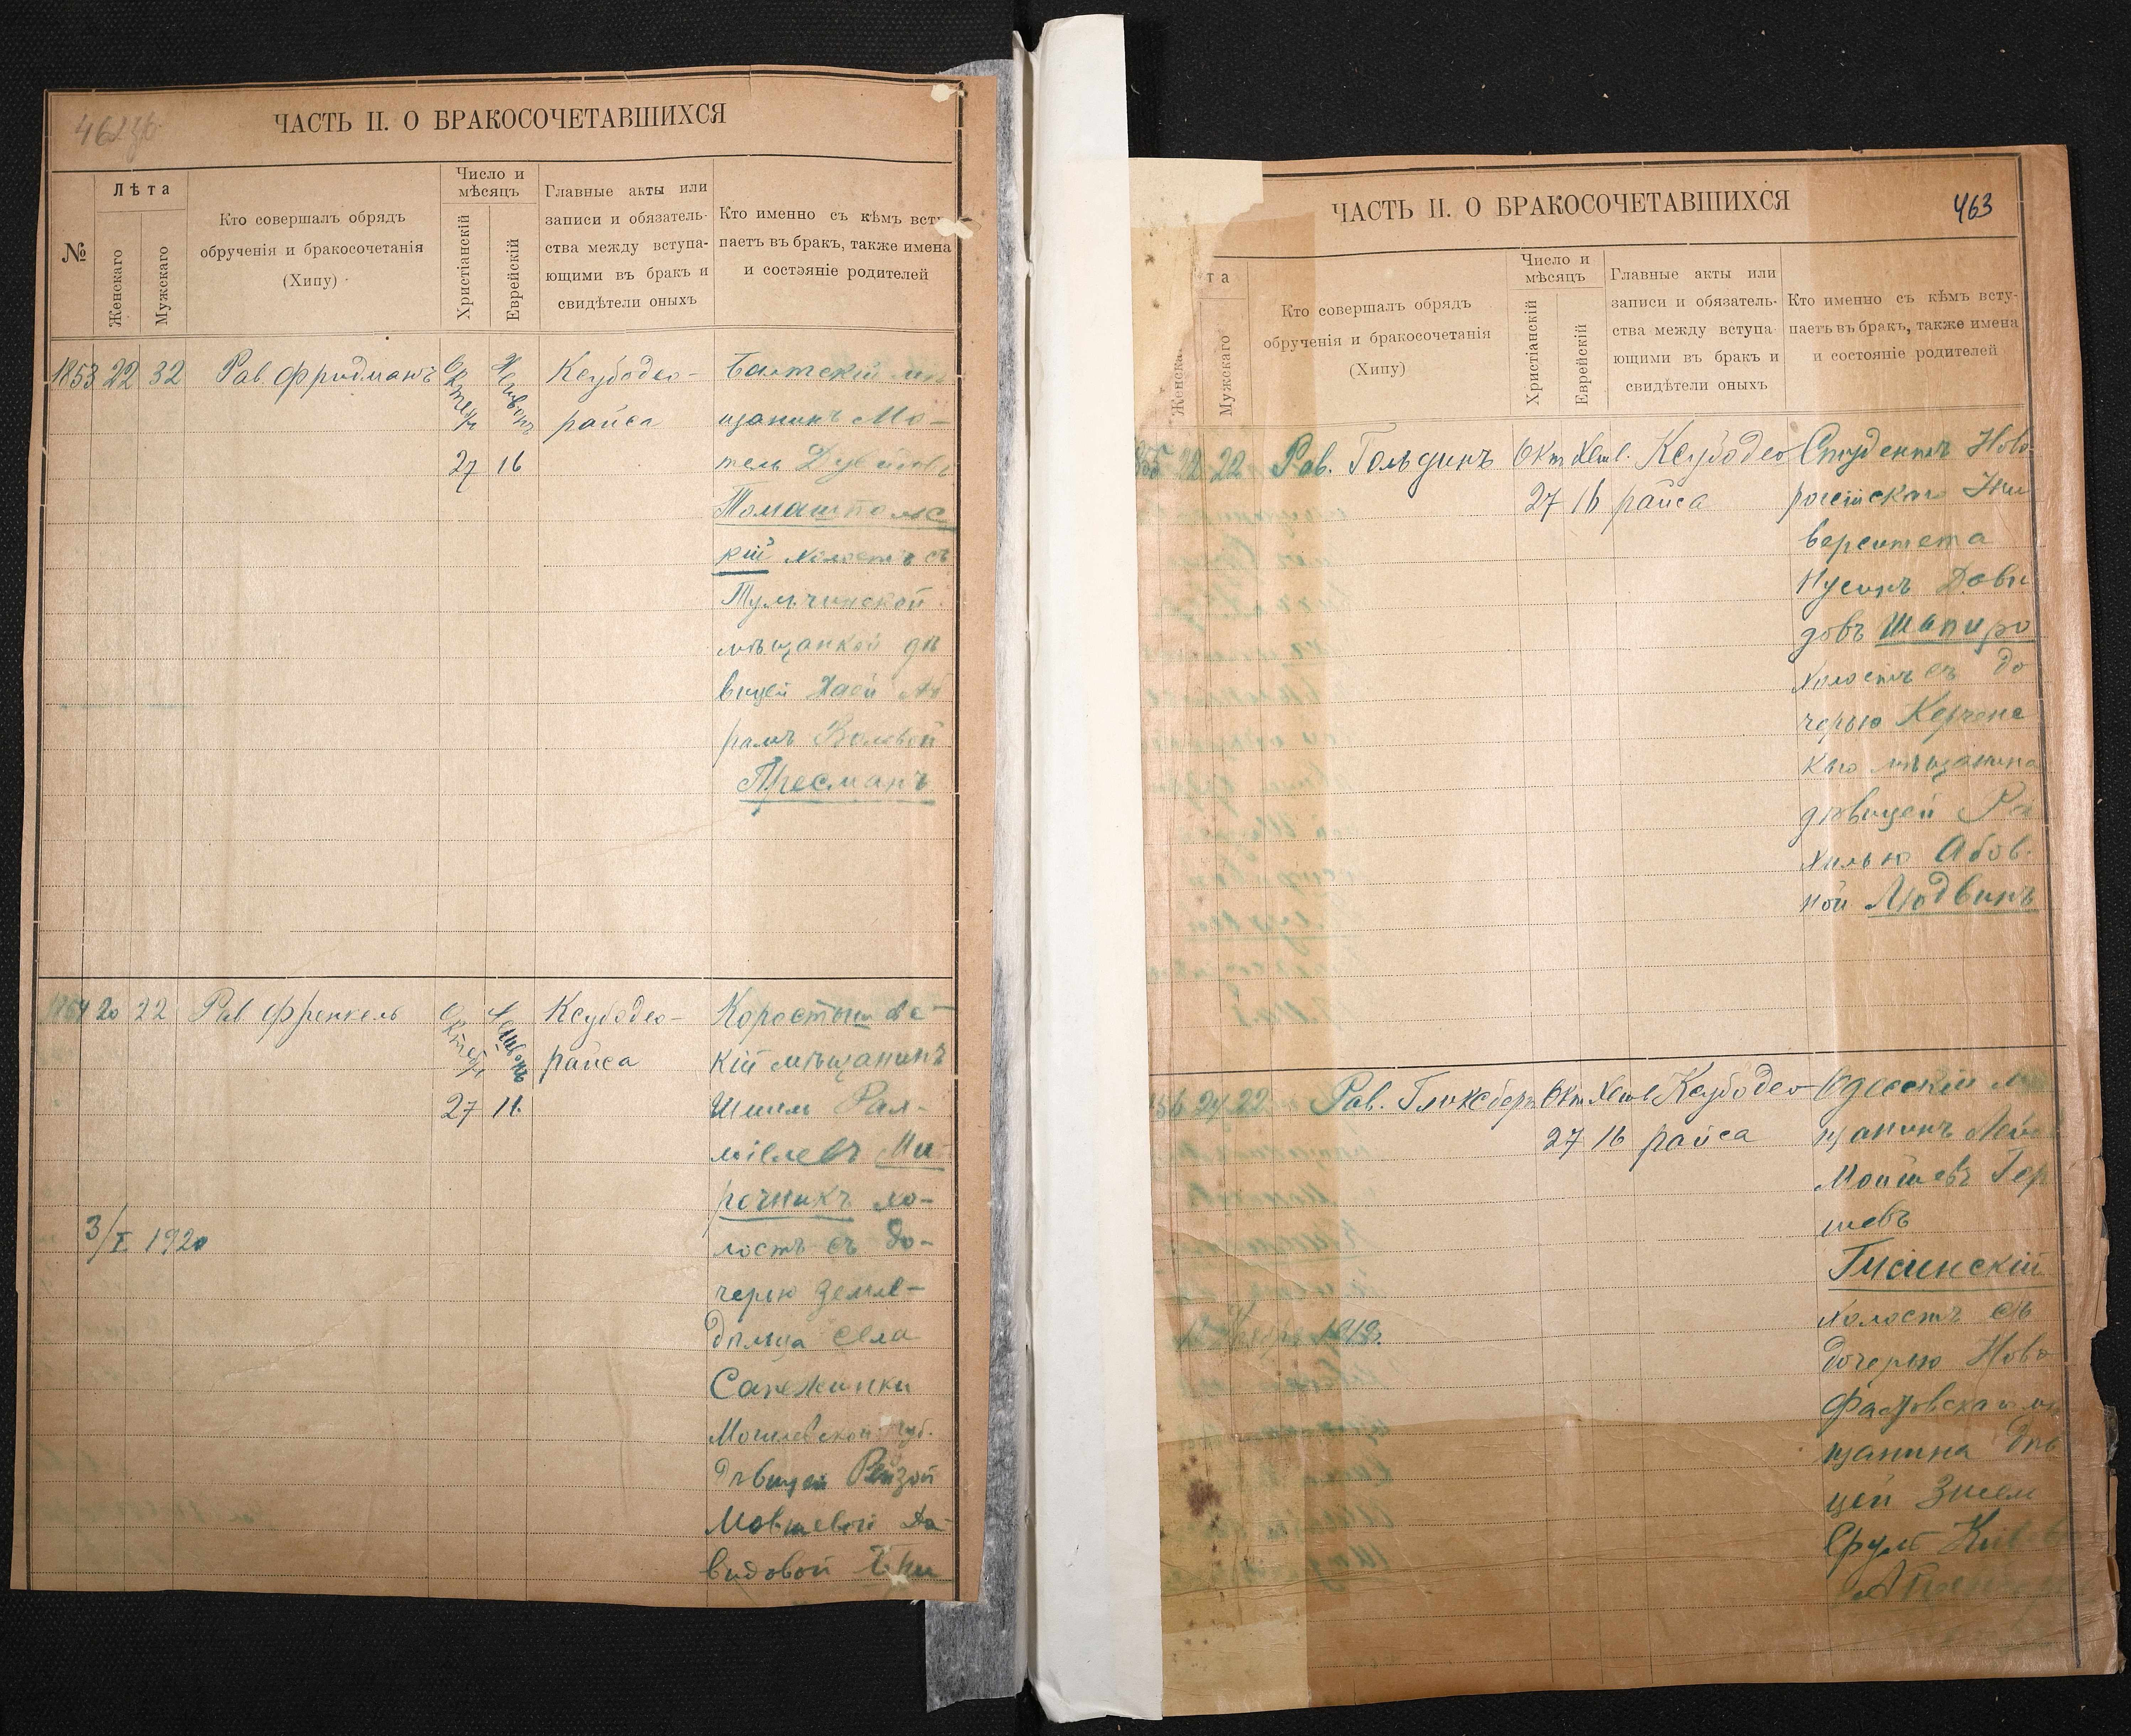 ЧАСТЬ II. О БРАКОСОЧЕТАВШИХСЯ
№
Лѣта
Женскаго
Мужскаго
Кто совершалъ обрядъ
обрученія и бракосочетанія
(Хипу)
Число и
мѣсяцъ
Христіанскій
Еврейскій
Главные акты или
записи и обязатель-
ства между вступа-
ющими въ бракъ и
свидѣтели оныхъ
Кто именно съ кѣмъ всту
паетъ въ бракъ, также имена
и состояніе родителей
1853 22 32
Рав. Фридманъ
Октября
Хешвонъ
27 16
Ксубодео-
райса
Балтскій мѣ
щанинъ Мо-
тель
Томашпольс
кій холостъ съ
Тульчинской
мѣщанкой дѣ
вицей Хаей Аб
рамъ Волевой
Пресманъ
1854 20 22
Рав. Френкель
Октября
Хешвонъ
27 16
Ксубодео-
райса
Коростышевс-
кій мѣщанинъ
Шлиом
Ми-
рочникъ хо-
лостъ съ до-
черью земле-
дѣльца села
Могилевской губ.
дѣвицей Рейзой
Мовшевой Да-
видовой
3/I 1920
ЧАСТЬ II. О БРАКОСОЧЕТАВШИХСЯ
463
та
Женска
Мужскаго
Кто совершалъ обрядъ
обрученія и бракосочетанія
(Хипу)
Число и
мѣсяцъ
Христіанскій
Еврейскій
Главные акты или
записи и обязатель-
ства между вступа-
ющими въ бракъ и
свидѣтели оныхъ
Кто именно съ кѣмъ всту-
паетъ въ бракъ, также имена
и состояніе родителей
22 22
Рав. Гольдинъ
Окт Хешв.
27 16
Ксубодео
райса
Студентъ Ново
россійскаго Уни
верситета
Нусинъ Дави
довъ Шапиро
холостъ съ до
черью Керченс
каго мѣщанина
дѣвицей Ра
хилью Абов.
ной Людвинъ
24 22
Рав. Гликсберг
Окт Хешв
27 16
Ксубодео-
райса
Одесскій мѣ
щанинъ Лейб
Мойшевъ Гер
шевъ
Гнсинскій
холостъ съ
дочерью Ново
Фастовскаго мѣ
щанина дѣв
цей